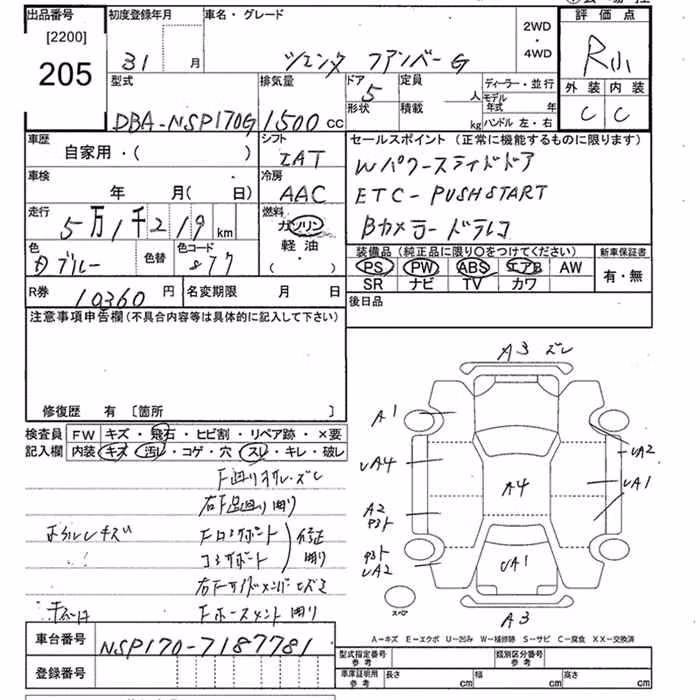 出品番号
[2200]
205
初度登録年月
31 月
車名・グレード
シエンタ ファンベーG
2WD
・
4WD
評価点
R
外装 内装
C C
型式
DBA-NSP170G
排気量
1500 cc
ドア
5
形状
定員
人
積載
kg
ディーラー・並行
モデル年式 年
ハンドル 左・右
車歴
自家用・( )
シフト
IAT
車検
年 月( 日)
冷房
AAC
走行
5万1千219 km
燃料
ガソリン
軽油
( )
色
ブルー
色替
色コード
877
セールスポイント (正常に機能するものに限ります)
Wパワースライドドア
ETC-PUSHSTART
Bカメラードラレコ
装備品 (純正品に限り○をつけてください)
PS PW ABS エアB AW
SR ナビ TV カワ
新車保証書
有・無
R券
10360 円
名変期限 月 日
後日品
注意事項申告欄(不具合内容等は具体的に記入して下さい)
修復歴 有 〔箇所 〕
検査員
記入欄
FW キズ・飛石・ヒビ割・リペア跡・×要
内装 キズ・汚レ・コゲ・穴・スレ・キレ・破レ
右F足廻り曲り
Fロアサポート
コアサポート
修正
曲り
右Fサイドメンバー
曲り
A3 ズレ
A1
UA4
A2
UA2
UA1
A4
UA2
UA1
A3
スペア
A-キズ E-エクボ U-凹み W-補修跡 S-サビ C-腐食 XX-交換済
車台番号
NSP170-7187781
登録番号
型式指定番号
参考
類別区分番号
参考
車庫証明用
参考
長さ cm
幅 cm
高さ cm